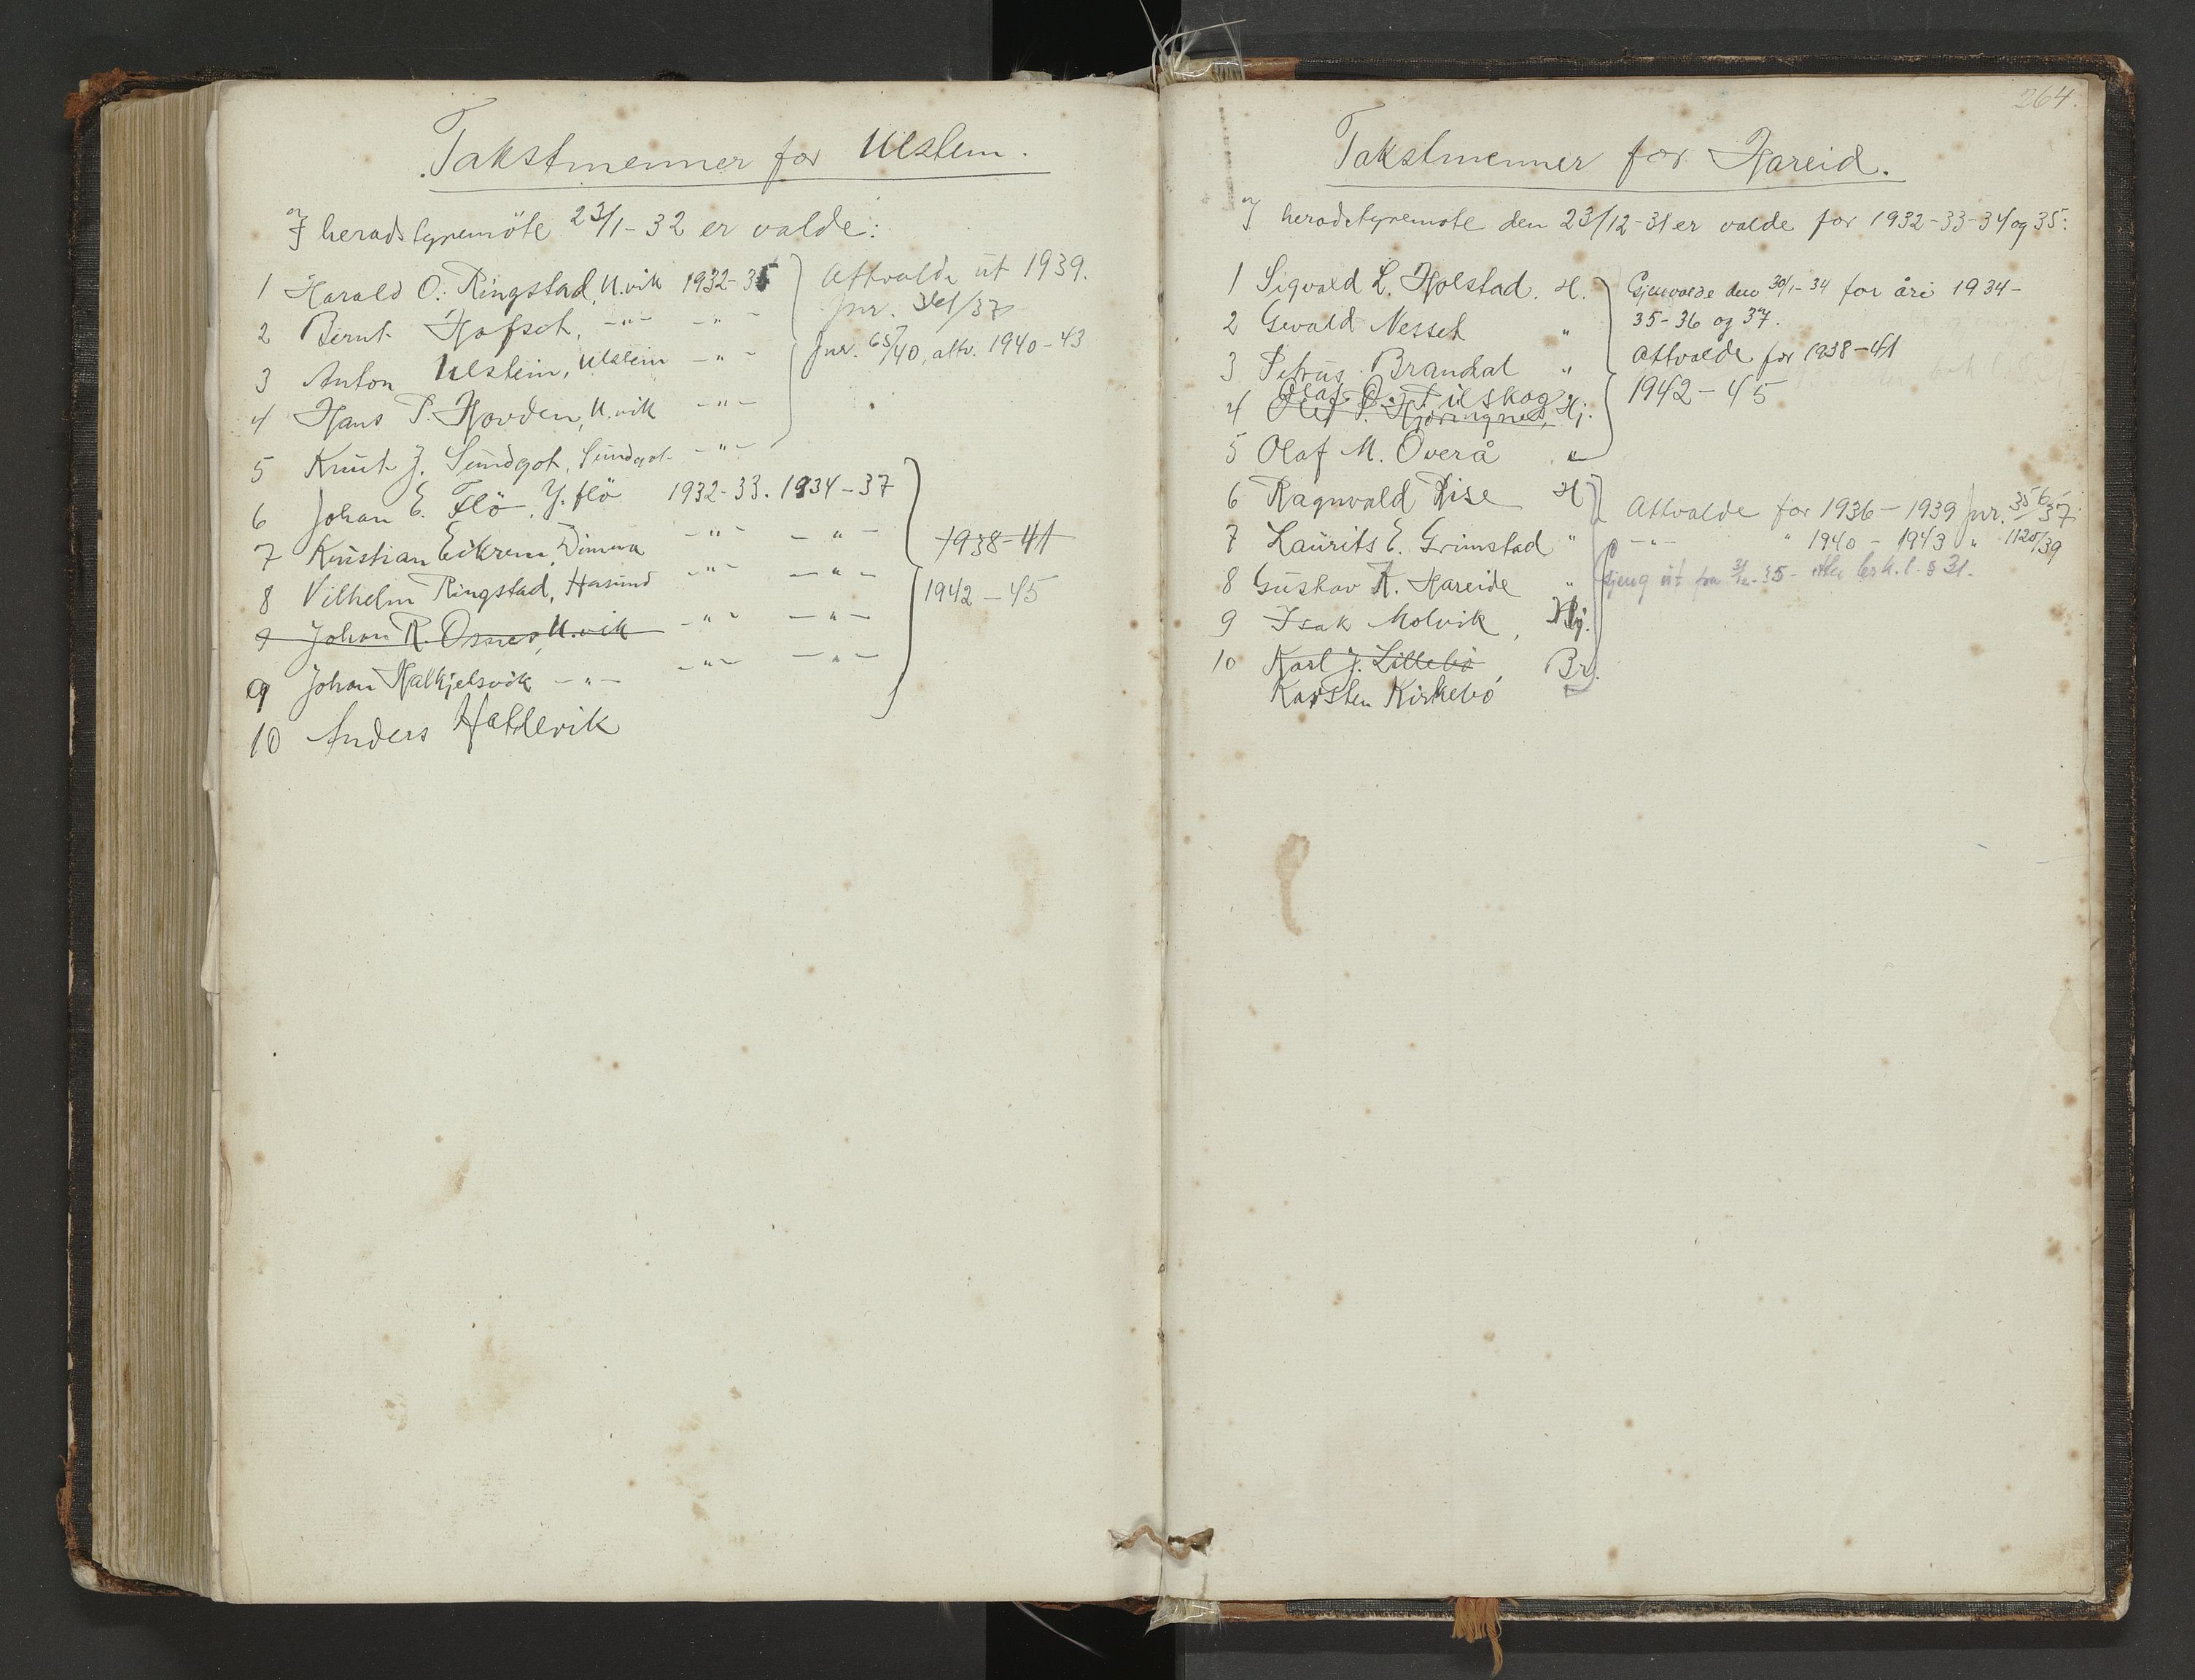 Takstmenner for Ulstein.
I heradstyremöte 23/1-32 er valde:
1 Harald O. Ringstad, U.vik 1932-35
Attvalde ut 1939.
Jnr. 361/37
2 Bernt Hofset, -"- -"-
Jnr. 657/40, attv. 1940-43
3 Anton Ulstein, Ulstein -"-
4 Hans P. Hovden, U.vik -"-
5 Knut J. Sundgot, Sundgot -"-
6 Johan E. Flö, Y. flö 1932-33. 1934-37
7 Kristian Eikrem, Dimna -"- -"-
1938-41
8 Vilhelm Ringstad, Hasund -"- -"-
1942-45
9 Johan R. Osnes, U.vik -"- -"-
9 Johan Halkjelsvik -"- -"- -"-
10 Anders Hatlevik
264.
Takstmenner for Hareid.
I heradstyremøte den 23/12-31 er valde for 1932-33-34 og 35:
1 Sigvald L. Hjolstad. H.
Gjenvalde den 30/1-34 for åri 1934-
35-36 og 37.
2 Gevald Nesset "
Attvalde for 1938-41
3 Petrus Brandal "
1942-45
Olaf O. Tilskog
4 Olef P. Hjöringnes, Hj.
5 Olaf M. Overå "
6 Ragnvald Rise H
Attvalde for 1936-1939 Jnr. 356/37
7 Laurits E. Grimstad "
-"- " 1940-1943 " 1120/39
8 Gustav K. Hareide "
gjeng ut fra 31/12-35- etter § 31.
9 Isak Molvik, Hj.
10 Karl J. Lillebö Br.
Karsten Kirkebö